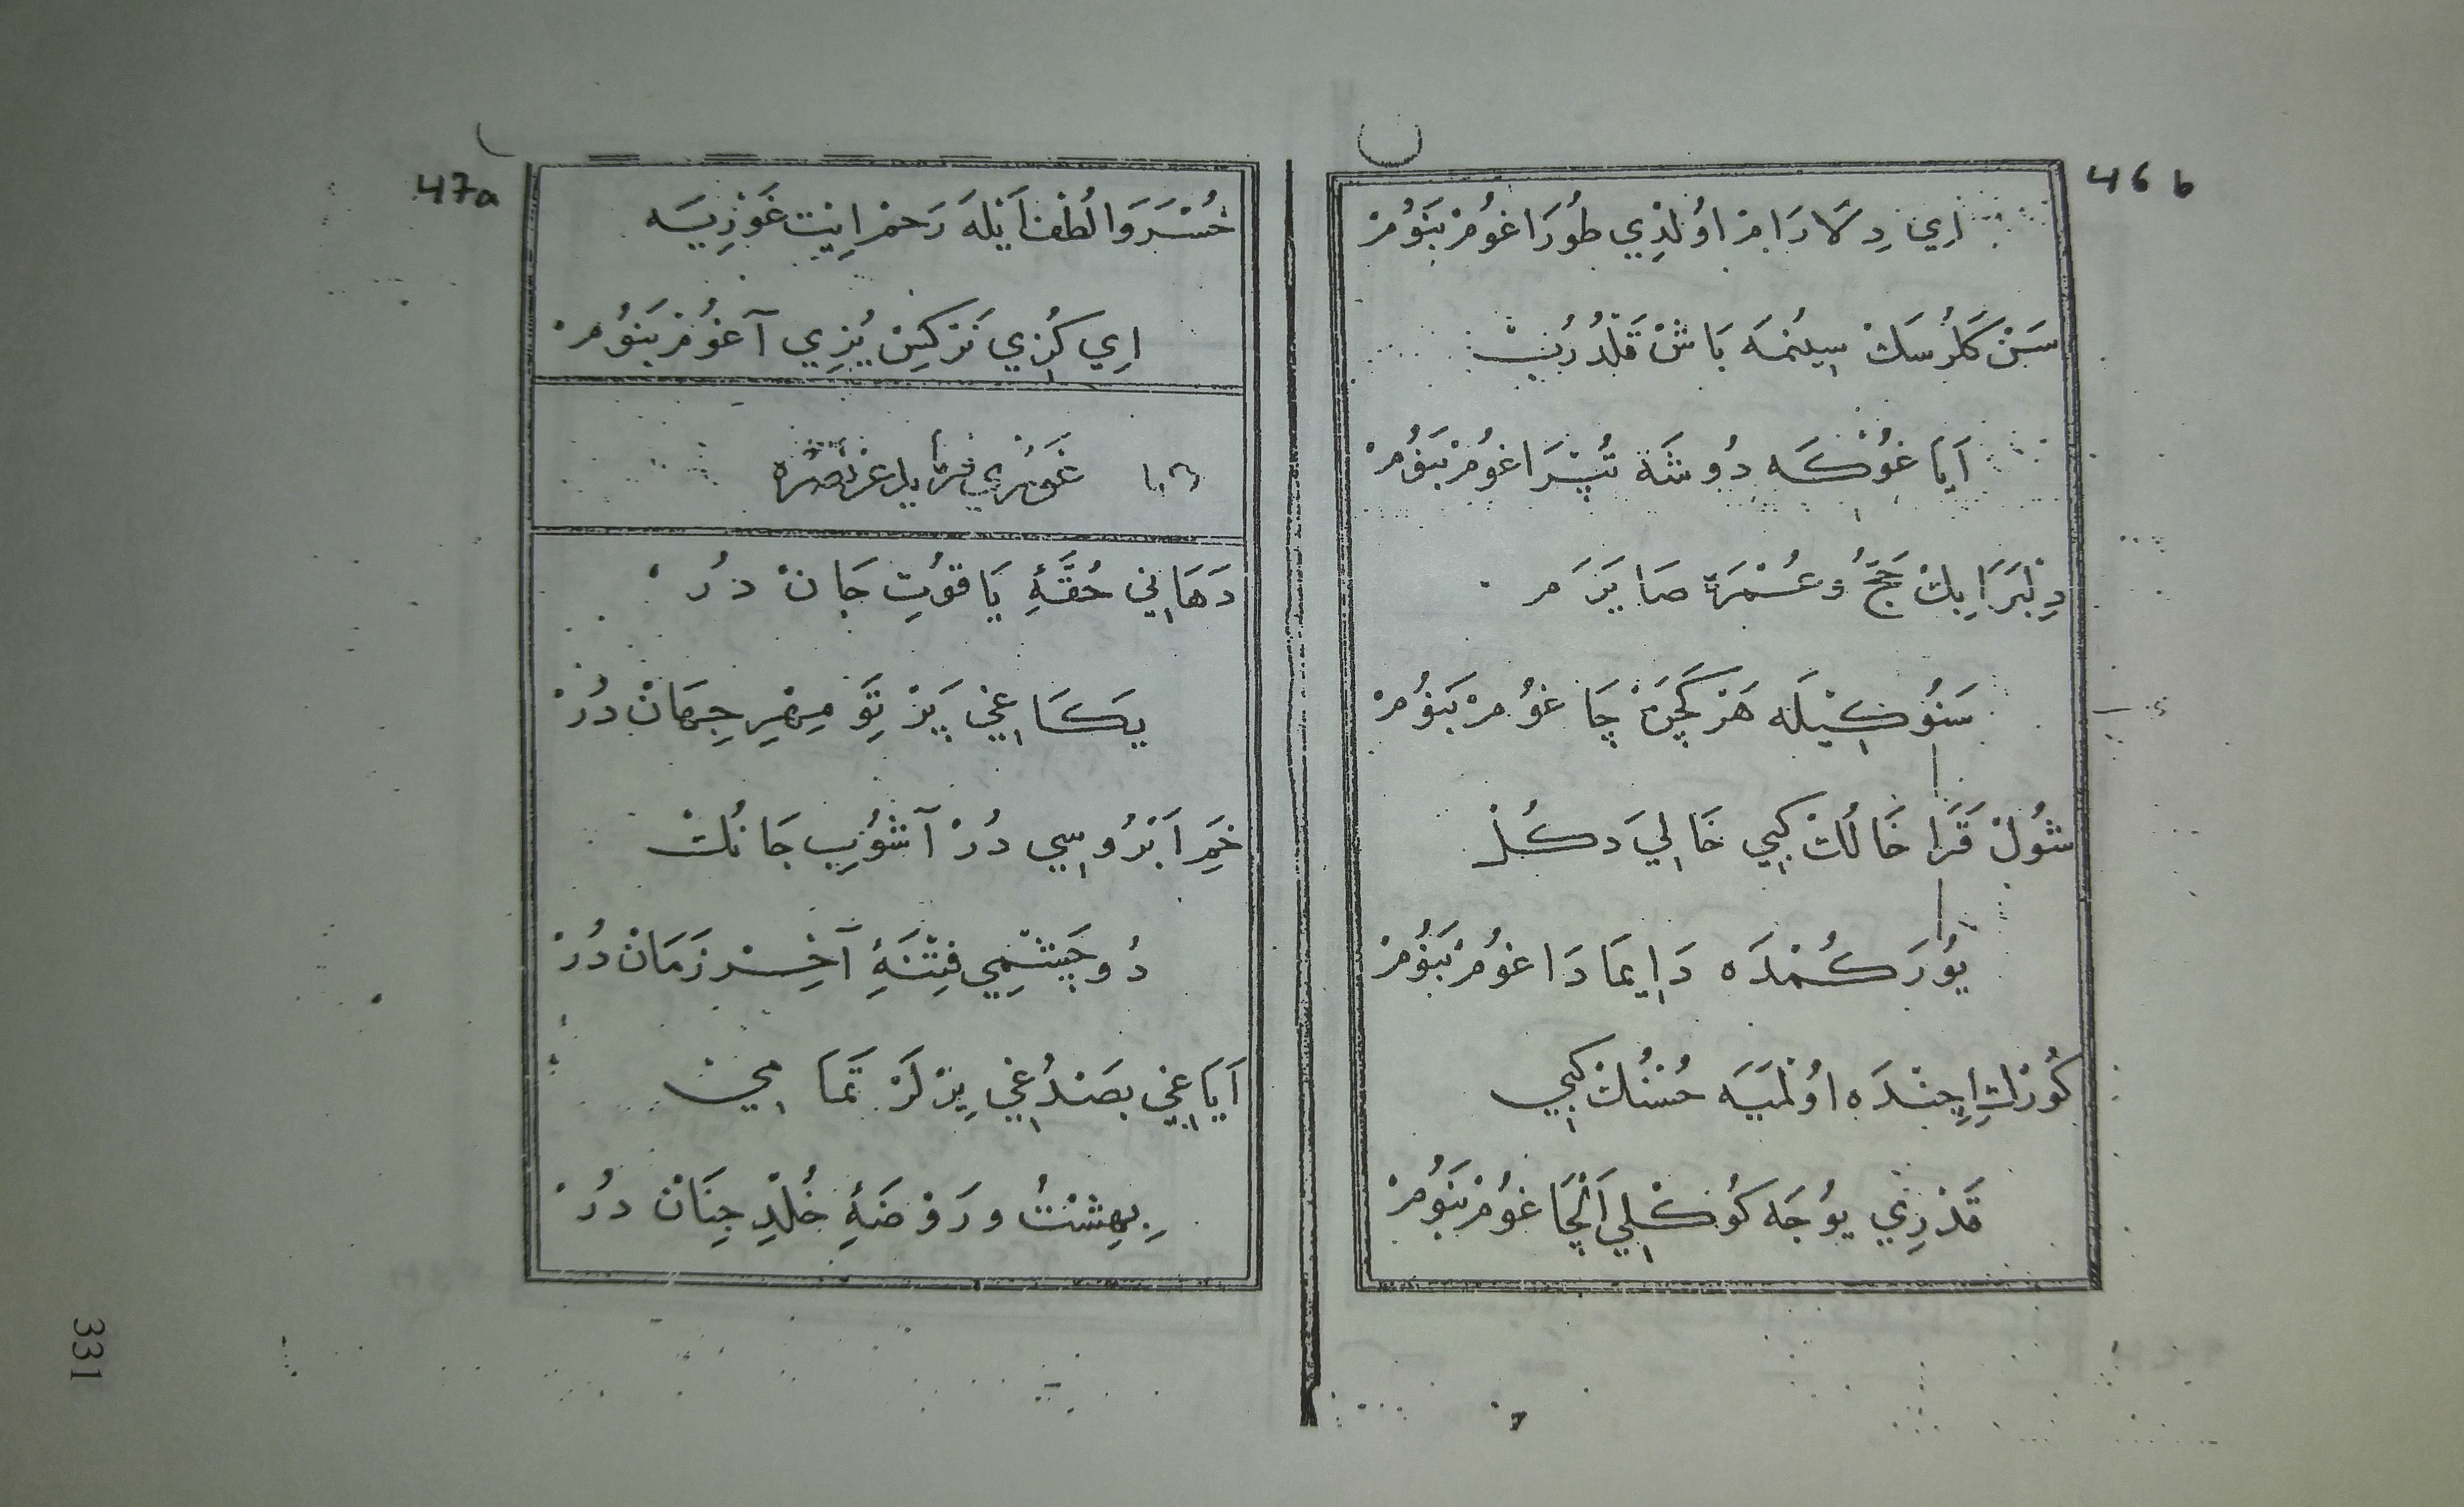 46 b
اِي دِلَارَامْ اوُلْدِي طُورَاغُومْ بَنُومْ
سَنْ كَلُرْسَكْ سِينُمَه بَاشْ قَلْدُرُبْ
اَيَا غُوُكَه دُوشَه تُپْرَاغُومْ بَنُومْ
دِلْبَرَا بِكْ حَجُّ وعُمْرَة صَايَرَمْ
سَنُوكِيلَه هَرْ كَچَنْ چَاغُومْ بَنُومْ
شُولْ قَرَا خَالُكْ كِبِي خَالِي دَكُلْ
يُورَكُمْدَه دَايِمَا دَاغُومْ بَنُومْ
كُوزْلَرْ اِچِنْدَه اوُلْمَيَه حُسْنُكْ كِبِي
قَدْرِي يُوجَه كُوكْلِي اَلْچَاغُومْ بَنُومْ
47a
خُسْرَوَا لُطْفْ اَيْلَه رَحْمْ اِيتْ غَوْرِيَه
اِي كُزِي نَرْكِسْ يُزِي آغُومْ بَنُومْ
غَوْرِي عز نصره
دَهَانِي حُقَّهِٔ يَاقُوتِ جَانْ دُرْ
يَكَاغِي پَرْتَوِ مِهْرِ جِهَانْ دُرْ
خَمِ اَبْرُوسِي دُرْ آشُوبِ جَانُكْ
دُو چَشْمِي فِتْنَهِٔ آخِرْ زَمَانْ دُرْ
اَيَاغِي بَصْدُغِي يِرْلَرْ تَمَامِي
بِهِشْتُ ورَوْضَهِٔ خُلْدِ جِنَانْ دُرْ
331